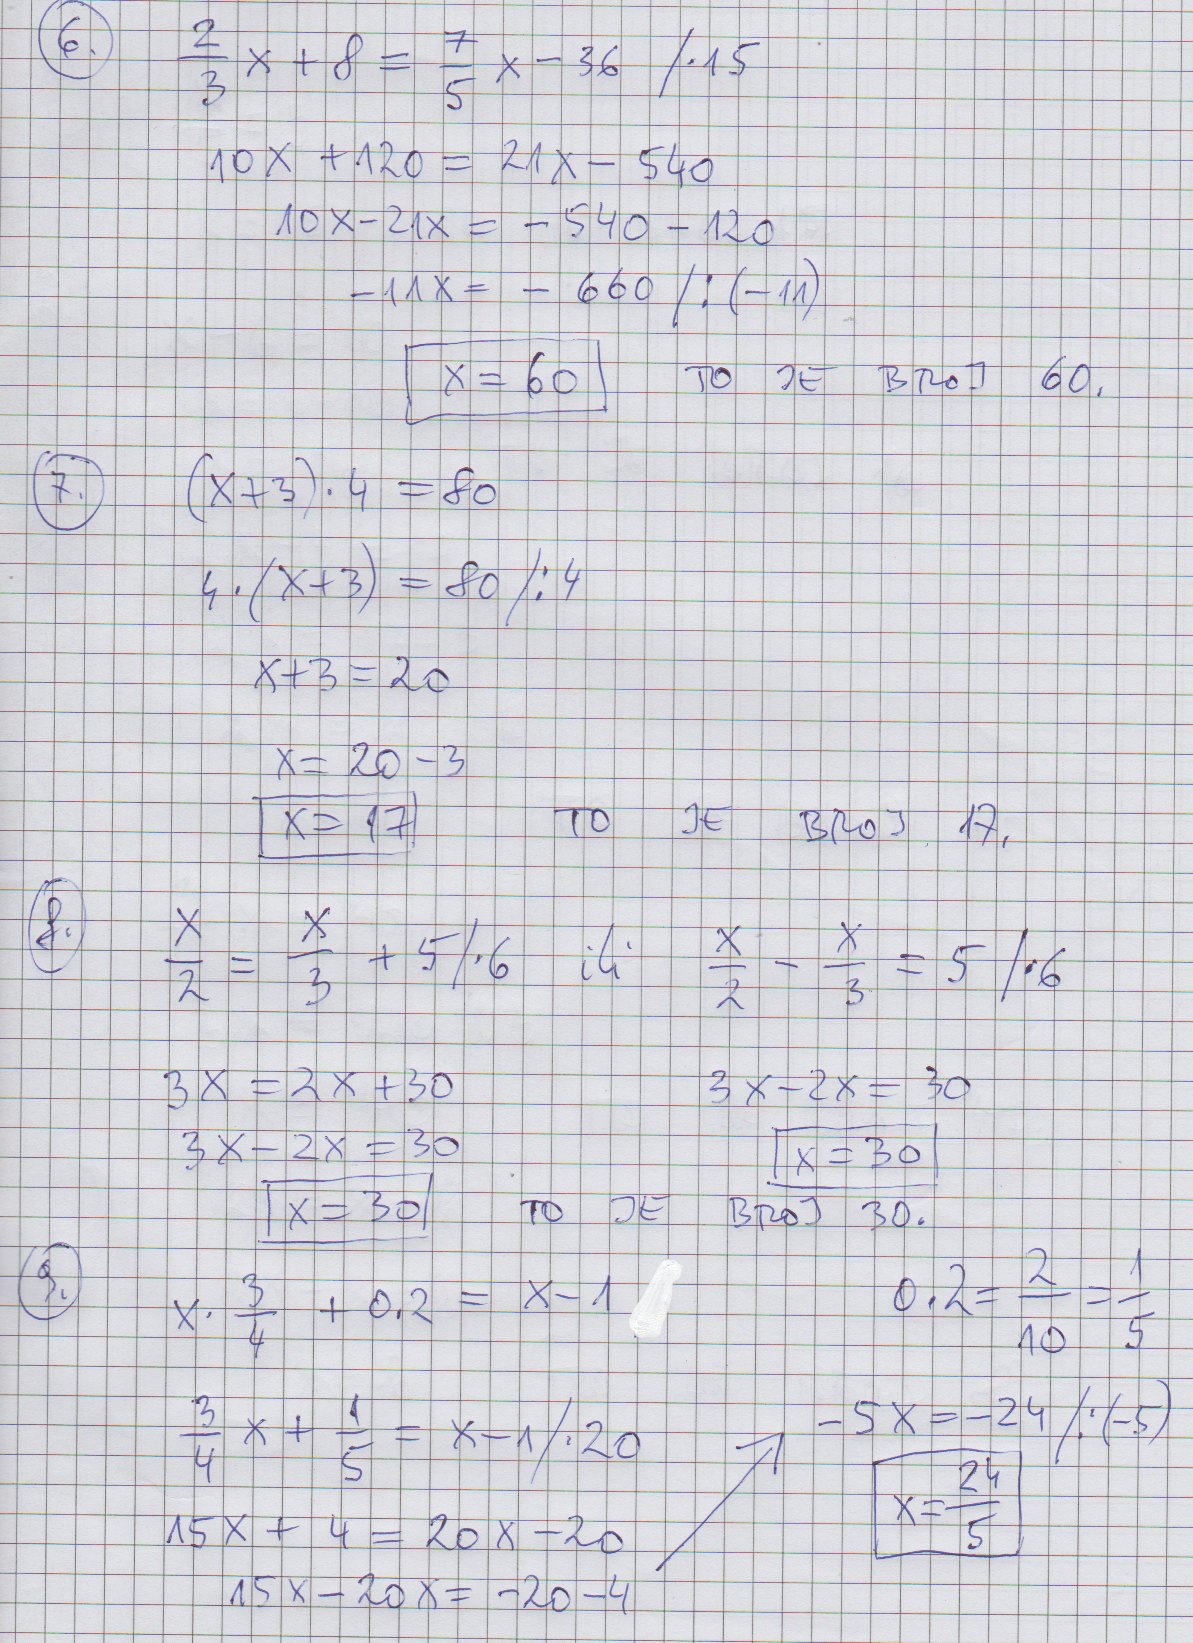 6. 2/3 x + 8 = 7/5 x - 36 /·15
10x + 120 = 21x - 540
10x - 21x = - 540 - 120
-11x = - 660 /:(-11)
x = 60 TO JE BROJ 60.
7. (x+3)·4 = 80
4·(x+3) = 80 /:4
x+3 = 20
x = 20 - 3
x = 17 TO JE BROJ 17.
8. x/2 = x/3 + 5 /·6 ili x/2 - x/3 = 5 /·6
3x = 2x + 30 3x - 2x = 30
3x - 2x = 30 x = 30
x = 30 TO JE BROJ 30.
9. x· 3/4 + 0.2 = x - 1 0.2 = 2/10 = 1/5
3/4 x + 1/5 = x - 1 /·20
15x + 4 = 20x - 20
15x - 20x = -20 - 4
-5x = -24 /:(-5)
x = 24/5